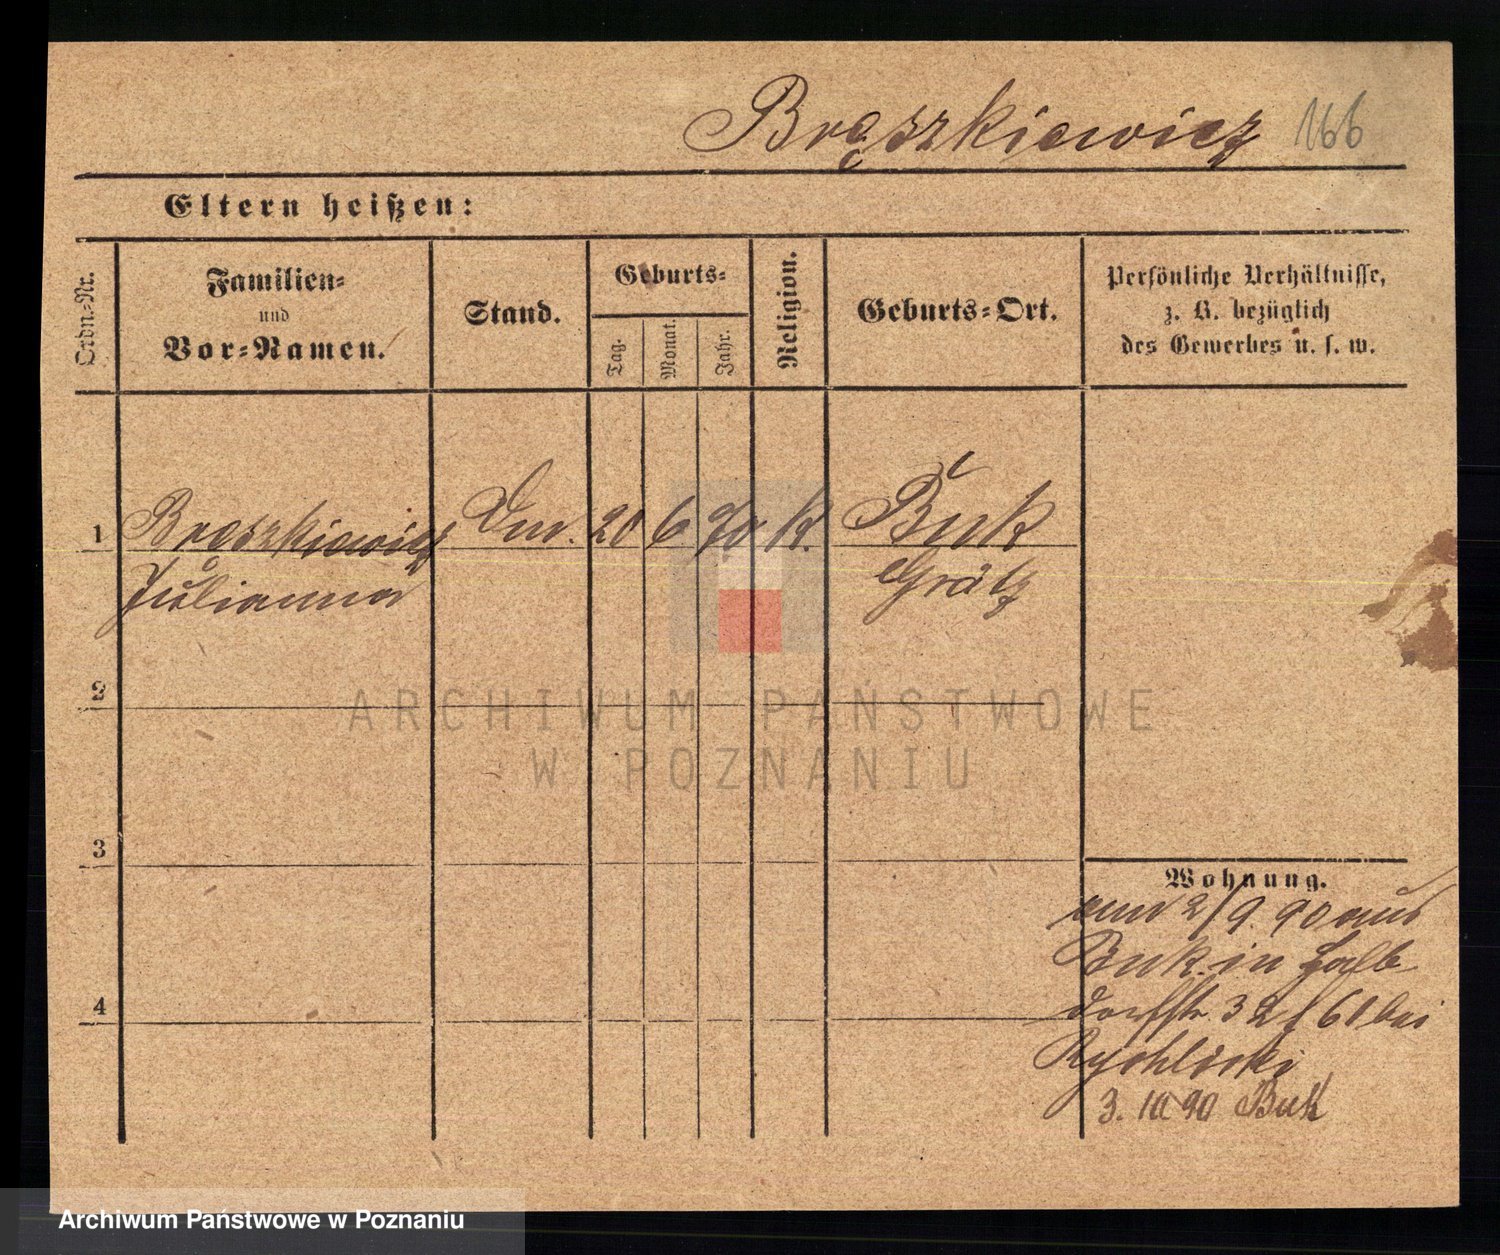 Brąszkiewicz 166
Eltern heißen:
Ordn.-Nr.
Familien-
und
Vor-Namen.
Stand.
Geburts-
Tag.
Monat.
Jahr.
Religion.
Geburts-Ort.
Persönliche Verhältnisse,
z. B. bezüglich
des Gewerbes u. s. w.
1 Brąszkiewicz 20 6 70 K. Buk
Julianna Grätz
2
3
4
Wohnung.
2/9. 90 aus
Buk in Halb
dorfstr. 32 / 61 bei
Rychlicki
3. 10 90 Buk
ARCHIWUM PAŃSTWOWE
W POZNANIU
Archiwum Państwowe w Poznaniu